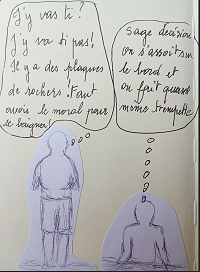 J'y vas ti?
J'y va ti pas!
Il y a des plaques
de rochers. Faut
avoir le moral pour
se baigner!
sage décision
on s'assoit sur
le bord et
on fait quand
même trempette